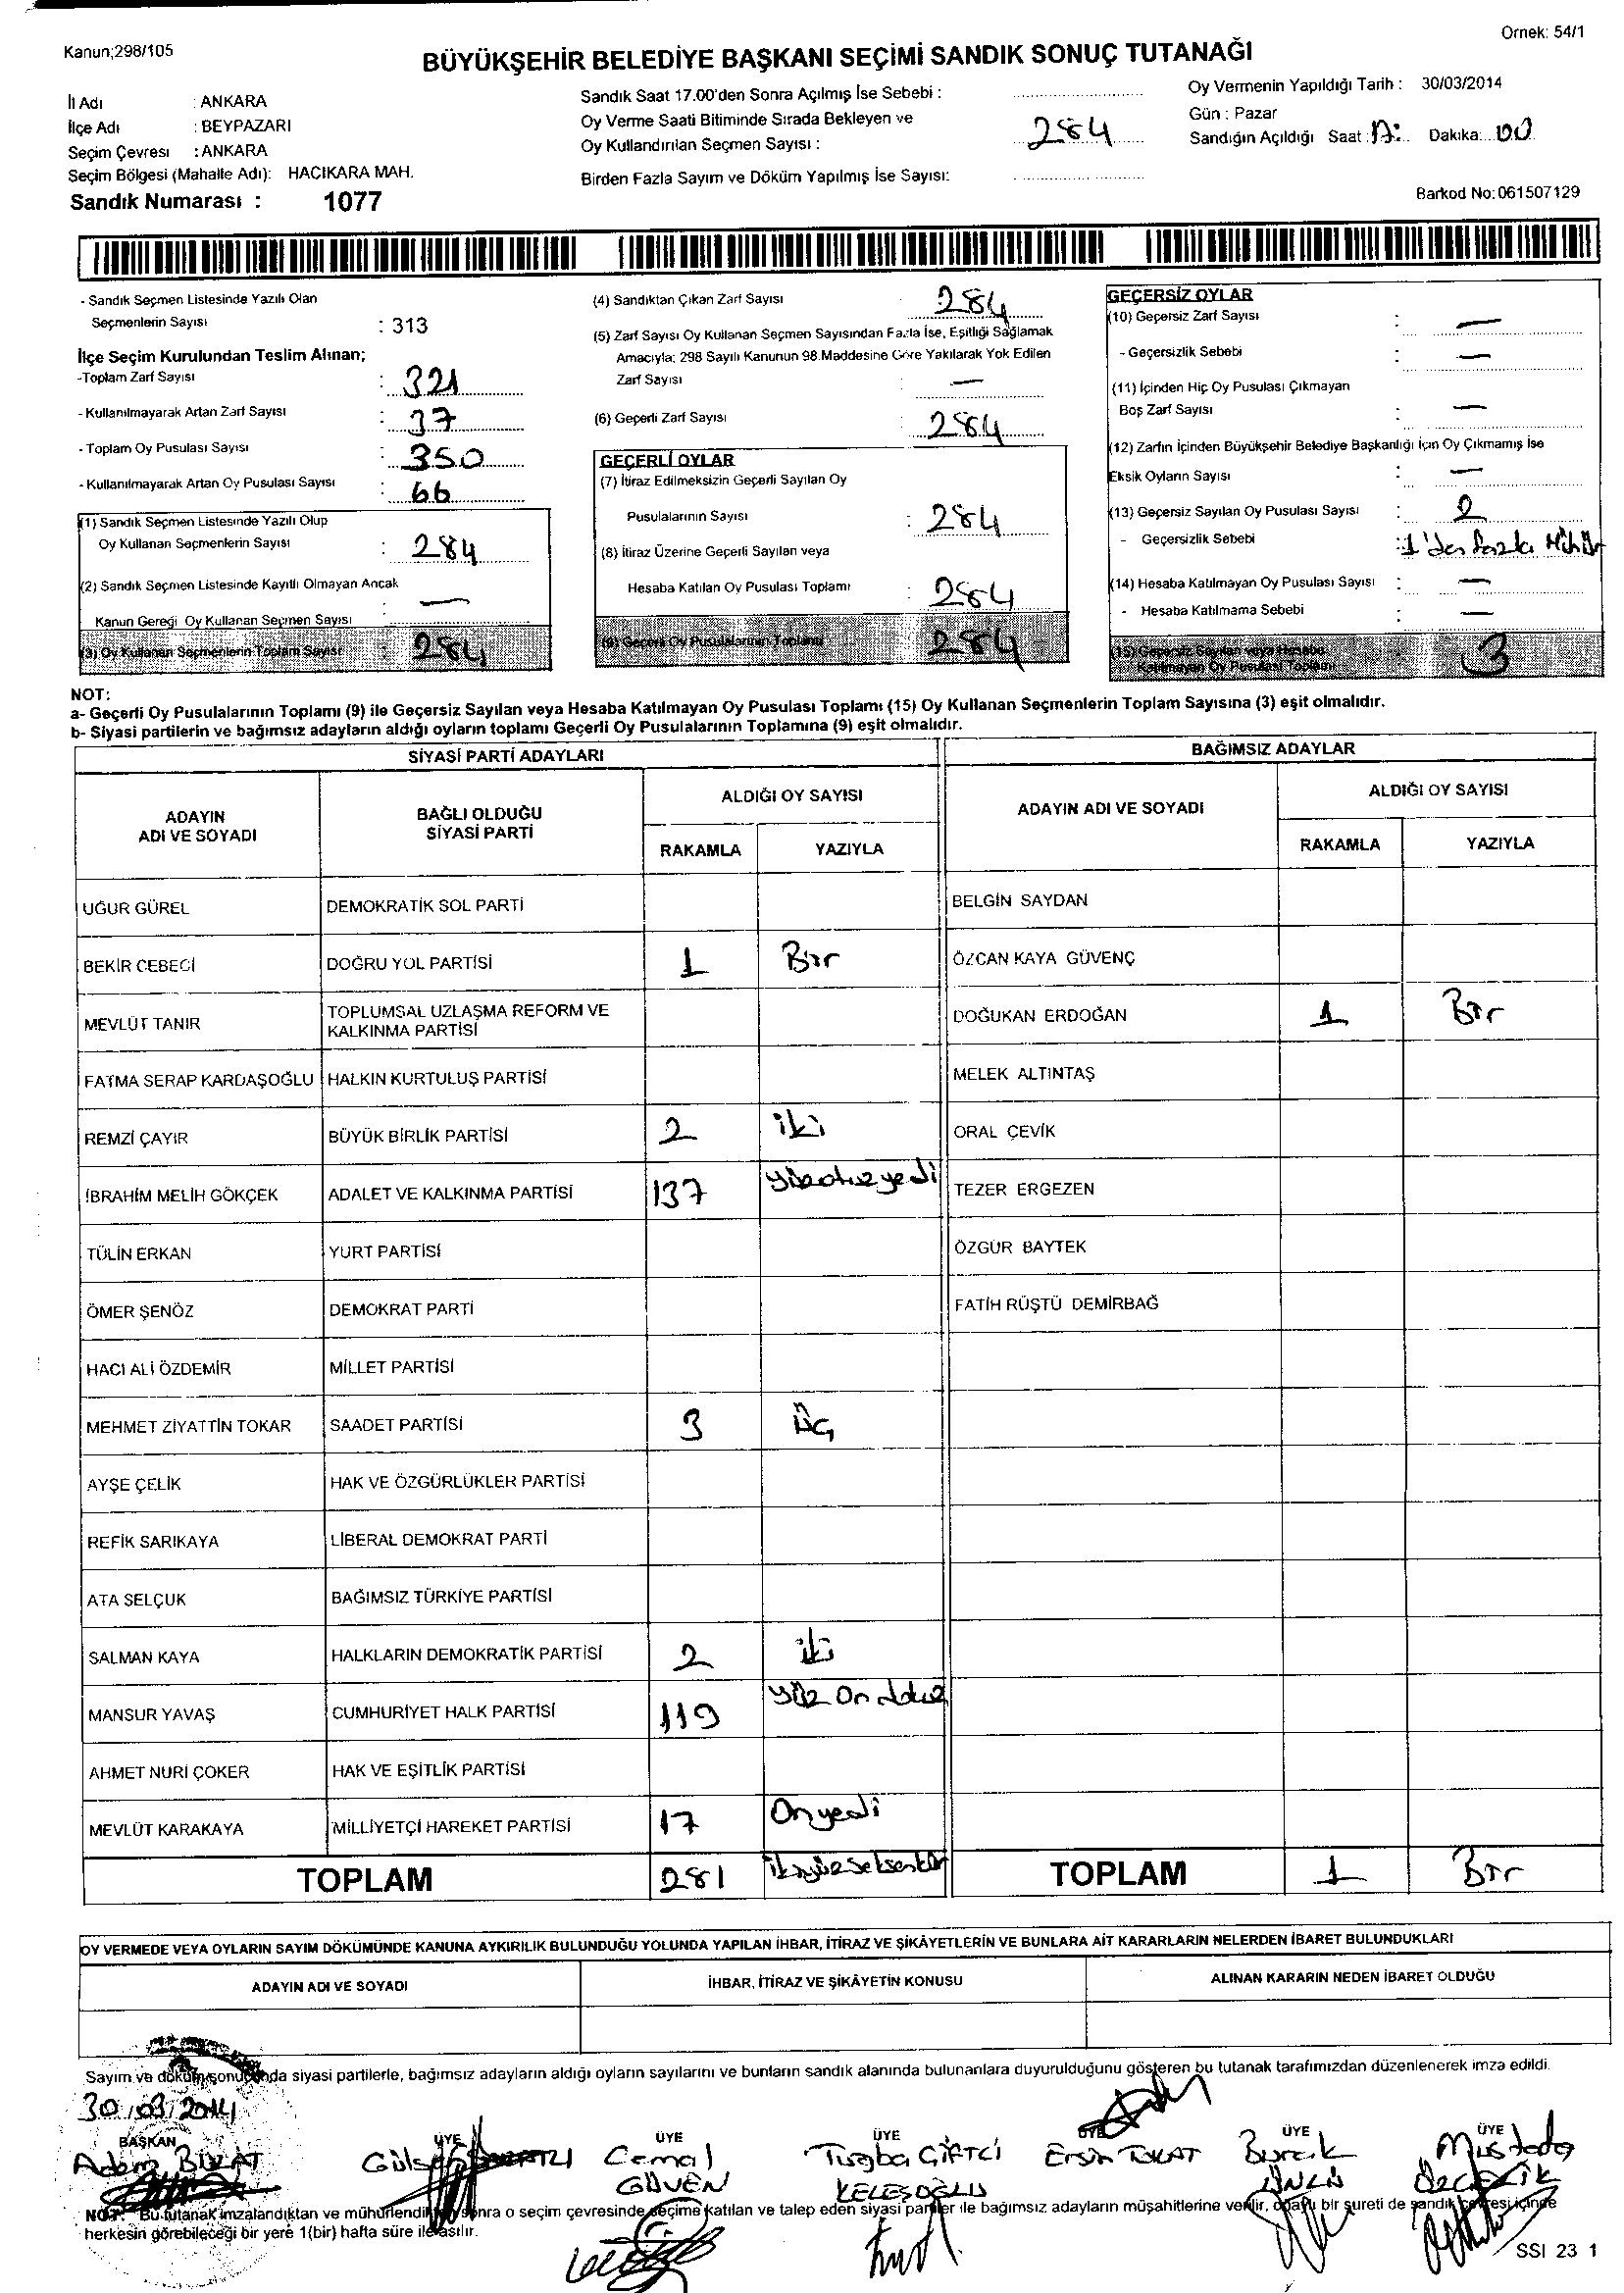 Kanun;298/105
Ornek: 54/1
BÜYÜKŞEHİR BELEDİYE BAŞKANI SEÇİMİ SANDIK SONUÇ TUTANAĞI
İl Adı : ANKARA
İlçe Adı : BEYPAZARI
Seçim Çevresi : ANKARA
Seçim Bölgesi (Mahalle Adı): HACIKARA MAH.
Sandık Numarası : 1077
Sandık Saat 17.00'den Sonra Açılmış İse Sebebi :
Oy Verme Saati Bitiminde Sırada Bekleyen ve
Oy Kullandırılan Seçmen Sayısı : 284
Birden Fazla Sayım ve Döküm Yapılmış İse Sayısı:
Oy Vermenin Yapıldığı Tarih : 30/03/2014
Gün : Pazar
Sandığın Açıldığı Saat : 17: Dakika: 00
Barkod No: 061507129
- Sandık Seçmen Listesinde Yazılı Olan
Seçmenlerin Sayısı : 313
İlçe Seçim Kurulundan Teslim Alınan;
-Toplam Zarf Sayısı : 321
- Kullanılmayarak Artan Zarf Sayısı : 37
- Toplam Oy Pusulası Sayısı : 350
- Kullanılmayarak Artan Oy Pusulası Sayısı : 66
(1) Sandık Seçmen Listesinde Yazılı Olup
Oy Kullanan Seçmenlerin Sayısı : 284
(2) Sandık Seçmen Listesinde Kayıtlı Olmayan Ancak
Kanun Gereği Oy Kullanan Seçmen Sayısı : —
(3) Oy Kullanan Seçmenlerin Toplam Sayısı 284
(4) Sandıktan Çıkan Zarf Sayısı : 284
(5) Zarf Sayısı Oy Kullanan Seçmen Sayısından Fazla İse, Eşitliği Sağlamak
Amacıyla; 298 Sayılı Kanunun 98.Maddesine Göre Yakılarak Yok Edilen
Zarf Sayısı : —
(6) Geçerli Zarf Sayısı : 284
GEÇERLİ OYLAR
(7) İtiraz Edilmeksizin Geçerli Sayılan Oy
Pusulalarının Sayısı : 284
(8) İtiraz Üzerine Geçerli Sayılan veya
Hesaba Katılan Oy Pusulası Toplamı : 284
(9) Geçerli Oy Pusulalarının Toplamı 284
GEÇERSİZ OYLAR
(10) Geçersiz Zarf Sayısı : —
- Geçersizlik Sebebi : —
(11) İçinden Hiç Oy Pusulası Çıkmayan
Boş Zarf Sayısı : —
(12) Zarfın İçinden Büyükşehir Belediye Başkanlığı İçin Oy Çıkmamış İse
Eksik Oyların Sayısı : —
(13) Geçersiz Sayılan Oy Pusulası Sayısı : 2
- Geçersizlik Sebebi : 1'den fazla Mühür
(14) Hesaba Katılmayan Oy Pusulası Sayısı : —
- Hesaba Katılmama Sebebi : —
(15) Geçersiz Sayılan veya Hesaba
Katılmayan Oy Pusulası Toplamı 3
NOT:
a- Geçerli Oy Pusulalarının Toplamı (9) ile Geçersiz Sayılan veya Hesaba Katılmayan Oy Pusulası Toplamı (15) Oy Kullanan Seçmenlerin Toplam Sayısına (3) eşit olmalıdır.
b- Siyasi partilerin ve bağımsız adayların aldığı oyların toplamı Geçerli Oy Pusulalarının Toplamına (9) eşit olmalıdır.
SİYASİ PARTİ ADAYLARI
ADAYIN ADI VE SOYADI
BAĞLI OLDUĞU SİYASİ PARTİ
ALDIĞI OY SAYISI
RAKAMLA YAZIYLA
UĞUR GÜREL DEMOKRATİK SOL PARTİ
BEKİR CEBECİ DOĞRU YOL PARTİSİ 1 Bir
MEVLÜT TANIR TOPLUMSAL UZLAŞMA REFORM VE KALKINMA PARTİSİ
FATMA SERAP KARDAŞOĞLU HALKIN KURTULUŞ PARTİSİ
REMZİ ÇAYIR BÜYÜK BİRLİK PARTİSİ 2 iki
İBRAHİM MELİH GÖKÇEK ADALET VE KALKINMA PARTİSİ 137 yüzotuzyedi
TÜLİN ERKAN YURT PARTİSİ
ÖMER ŞENÖZ DEMOKRAT PARTİ
HACI ALİ ÖZDEMİR MİLLET PARTİSİ
MEHMET ZİYATTİN TOKAR SAADET PARTİSİ 3 Üç
AYŞE ÇELİK HAK VE ÖZGÜRLÜKLER PARTİSİ
REFİK SARIKAYA LİBERAL DEMOKRAT PARTİ
ATA SELÇUK BAĞIMSIZ TÜRKİYE PARTİSİ
SALMAN KAYA HALKLARIN DEMOKRATİK PARTİSİ 2 iki
MANSUR YAVAŞ CUMHURİYET HALK PARTİSİ 119 yüz On dokuz
AHMET NURİ ÇOKER HAK VE EŞİTLİK PARTİSİ
MEVLÜT KARAKAYA MİLLİYETÇİ HAREKET PARTİSİ 17 Onyedi
TOPLAM 281 ikiyüzseksenbir
BAĞIMSIZ ADAYLAR
ADAYIN ADI VE SOYADI
ALDIĞI OY SAYISI
RAKAMLA YAZIYLA
BELGİN SAYDAN
ÖZCAN KAYA GÜVENÇ
DOĞUKAN ERDOĞAN 1 Bir
MELEK ALTINTAŞ
ORAL ÇEVİK
TEZER ERGEZEN
ÖZGÜR BAYTEK
FATİH RÜŞTÜ DEMİRBAĞ
TOPLAM 1 Bir
OY VERMEDE VEYA OYLARIN SAYIM DÖKÜMÜNDE KANUNA AYKIRILIK BULUNDUĞU YOLUNDA YAPILAN İHBAR, İTİRAZ VE ŞİKÂYETLERİN VE BUNLARA AİT KARARLARIN NELERDEN İBARET BULUNDUKLARI
ADAYIN ADI VE SOYADI İHBAR, İTİRAZ VE ŞİKÂYETİN KONUSU ALINAN KARARIN NEDEN İBARET OLDUĞU
Sayım ve döküm sonucunda siyasi partilerle, bağımsız adayların aldığı oyların sayılarını ve bunların sandık alanında bulunanlara duyurulduğunu gösteren bu tutanak tarafımızdan düzenlenerek imza edildi.
30/03/2014
BAŞKAN ÜYE ÜYE ÜYE ÜYE ÜYE ÜYE
Adem Cemal Tuğba ÇİFTCİ Ersin TOKAT Burak Mustafa
GÜVEN KELEŞOĞLU ÖZÇELİK
NOT: Bu tutanak imzalandıktan ve mühürlendikten sonra o seçim çevresinde seçime katılan ve talep eden siyasi partiler ile bağımsız adayların müşahitlerine verilir, onaylı bir sureti de sandık çevresi içinde
herkesin görebileceği bir yere 1(bir) hafta süre ile asılır.
SSI 23 1